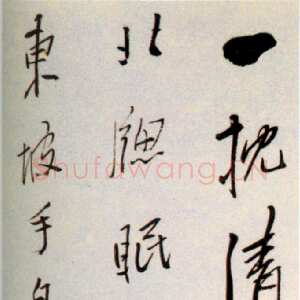 一枕清
北窗眠
東坡手
Shufawang.CN